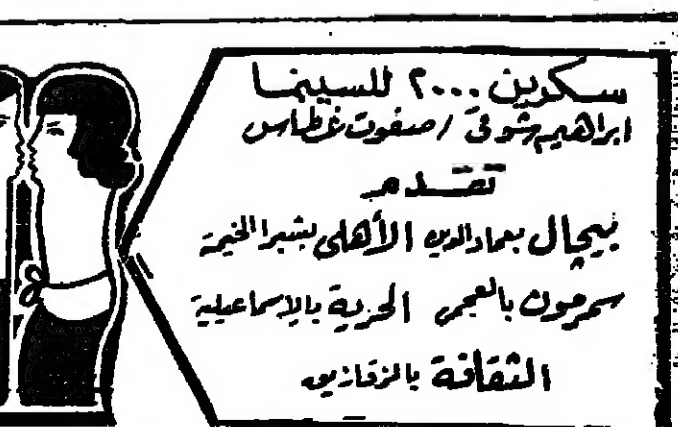 سكرين ٢٠٠٠ للسينما
ابراهيم شوقى / صفوت غطاس
تقدم
بيجال بعماد الدين الأهلى بشبرا الخيمة
سمرمون بالعجمى الحرية بالاسماعيلية
الثقافة بالزقازيق